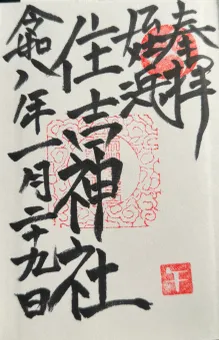 奉拝
姪浜
住吉神社
令和八年一月二十九日
午